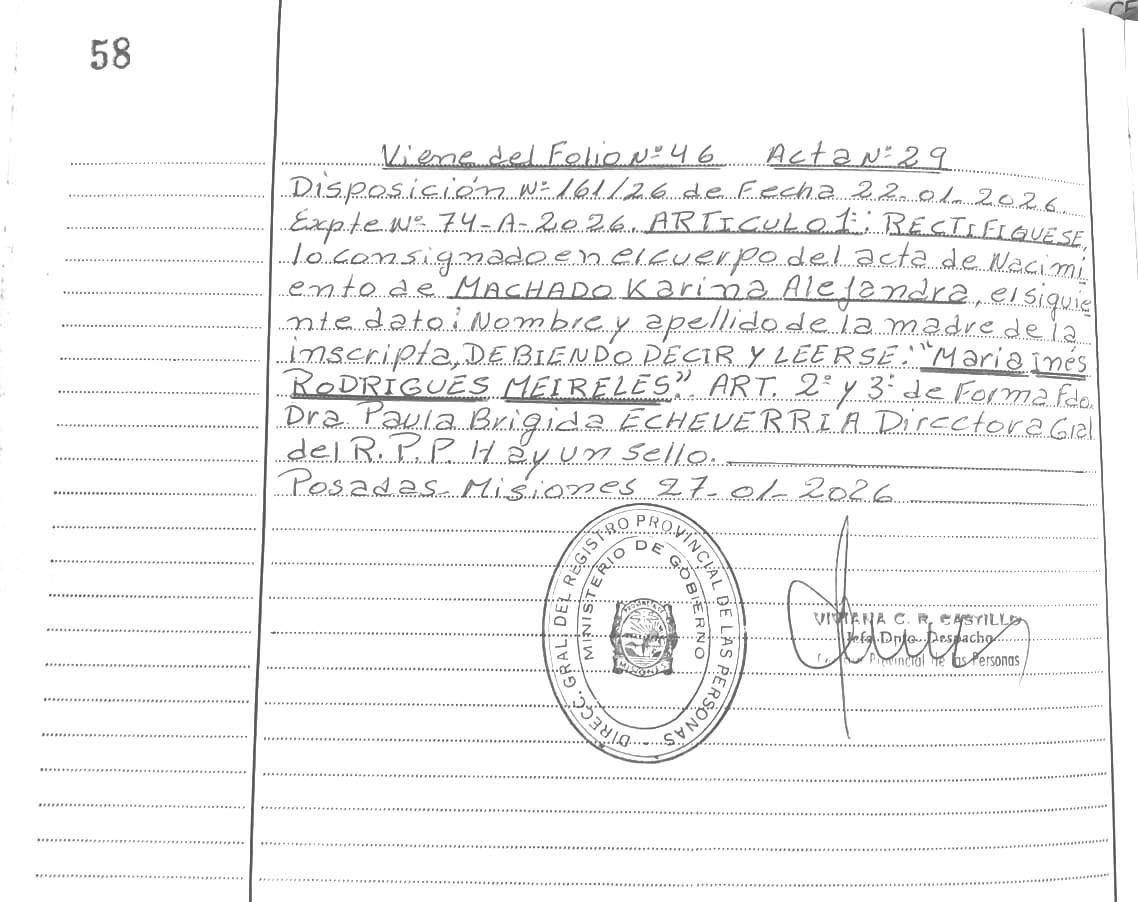 CE
58
Viene del Folio Nº 46 Acta Nº 29
Disposición Nº 161/26 de Fecha 22-01-2026
Expte Nº 74-A-2026. ARTICULO 1º: RECTIFIQUESE,
lo consignado en el cuerpo del acta de Nacimi
ento de MACHADO Karina Alejandra, el siguie
nte dato: Nombre y apellido de la madre de la
inscripta, DEBIENDO DECIR Y LEERSE: "Maria Inés
RODRIGUES MEIRELES". ART. 2º y 3º de Forma Fdo.
Dra Paula Brigida ECHEVERRIA Directora Gral
del R.P.P. Hay un Sello.
Posadas Misiones 27-01-2026
DIRECC. GRAL. DEL REGISTRO PROVINCIAL DE LAS PERSONAS
MINISTERIO DE GOBIERNO
MISIONES
VIVIANA C. R. CASTILLO
Jefa Dpto. Despacho
Provincial de las Personas